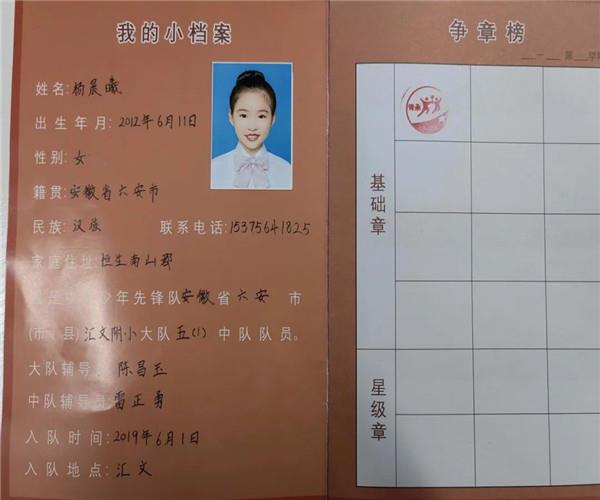 我的小档案
姓名:杨晨曦
出生年月:2012年6月11日
性别:女
籍贯:安徽省六安市
民族:汉族 联系电话:15375641825
家庭住址:恒生南山郡
少年先锋队安徽省六安市
(市、县)汇文附小大队五(1)中队队员。
大队辅导员:陈昌玉
中队辅导员:雷正勇
入队时间:2019年6月1日
入队地点:汇文
争章榜
第
基础章
星级章